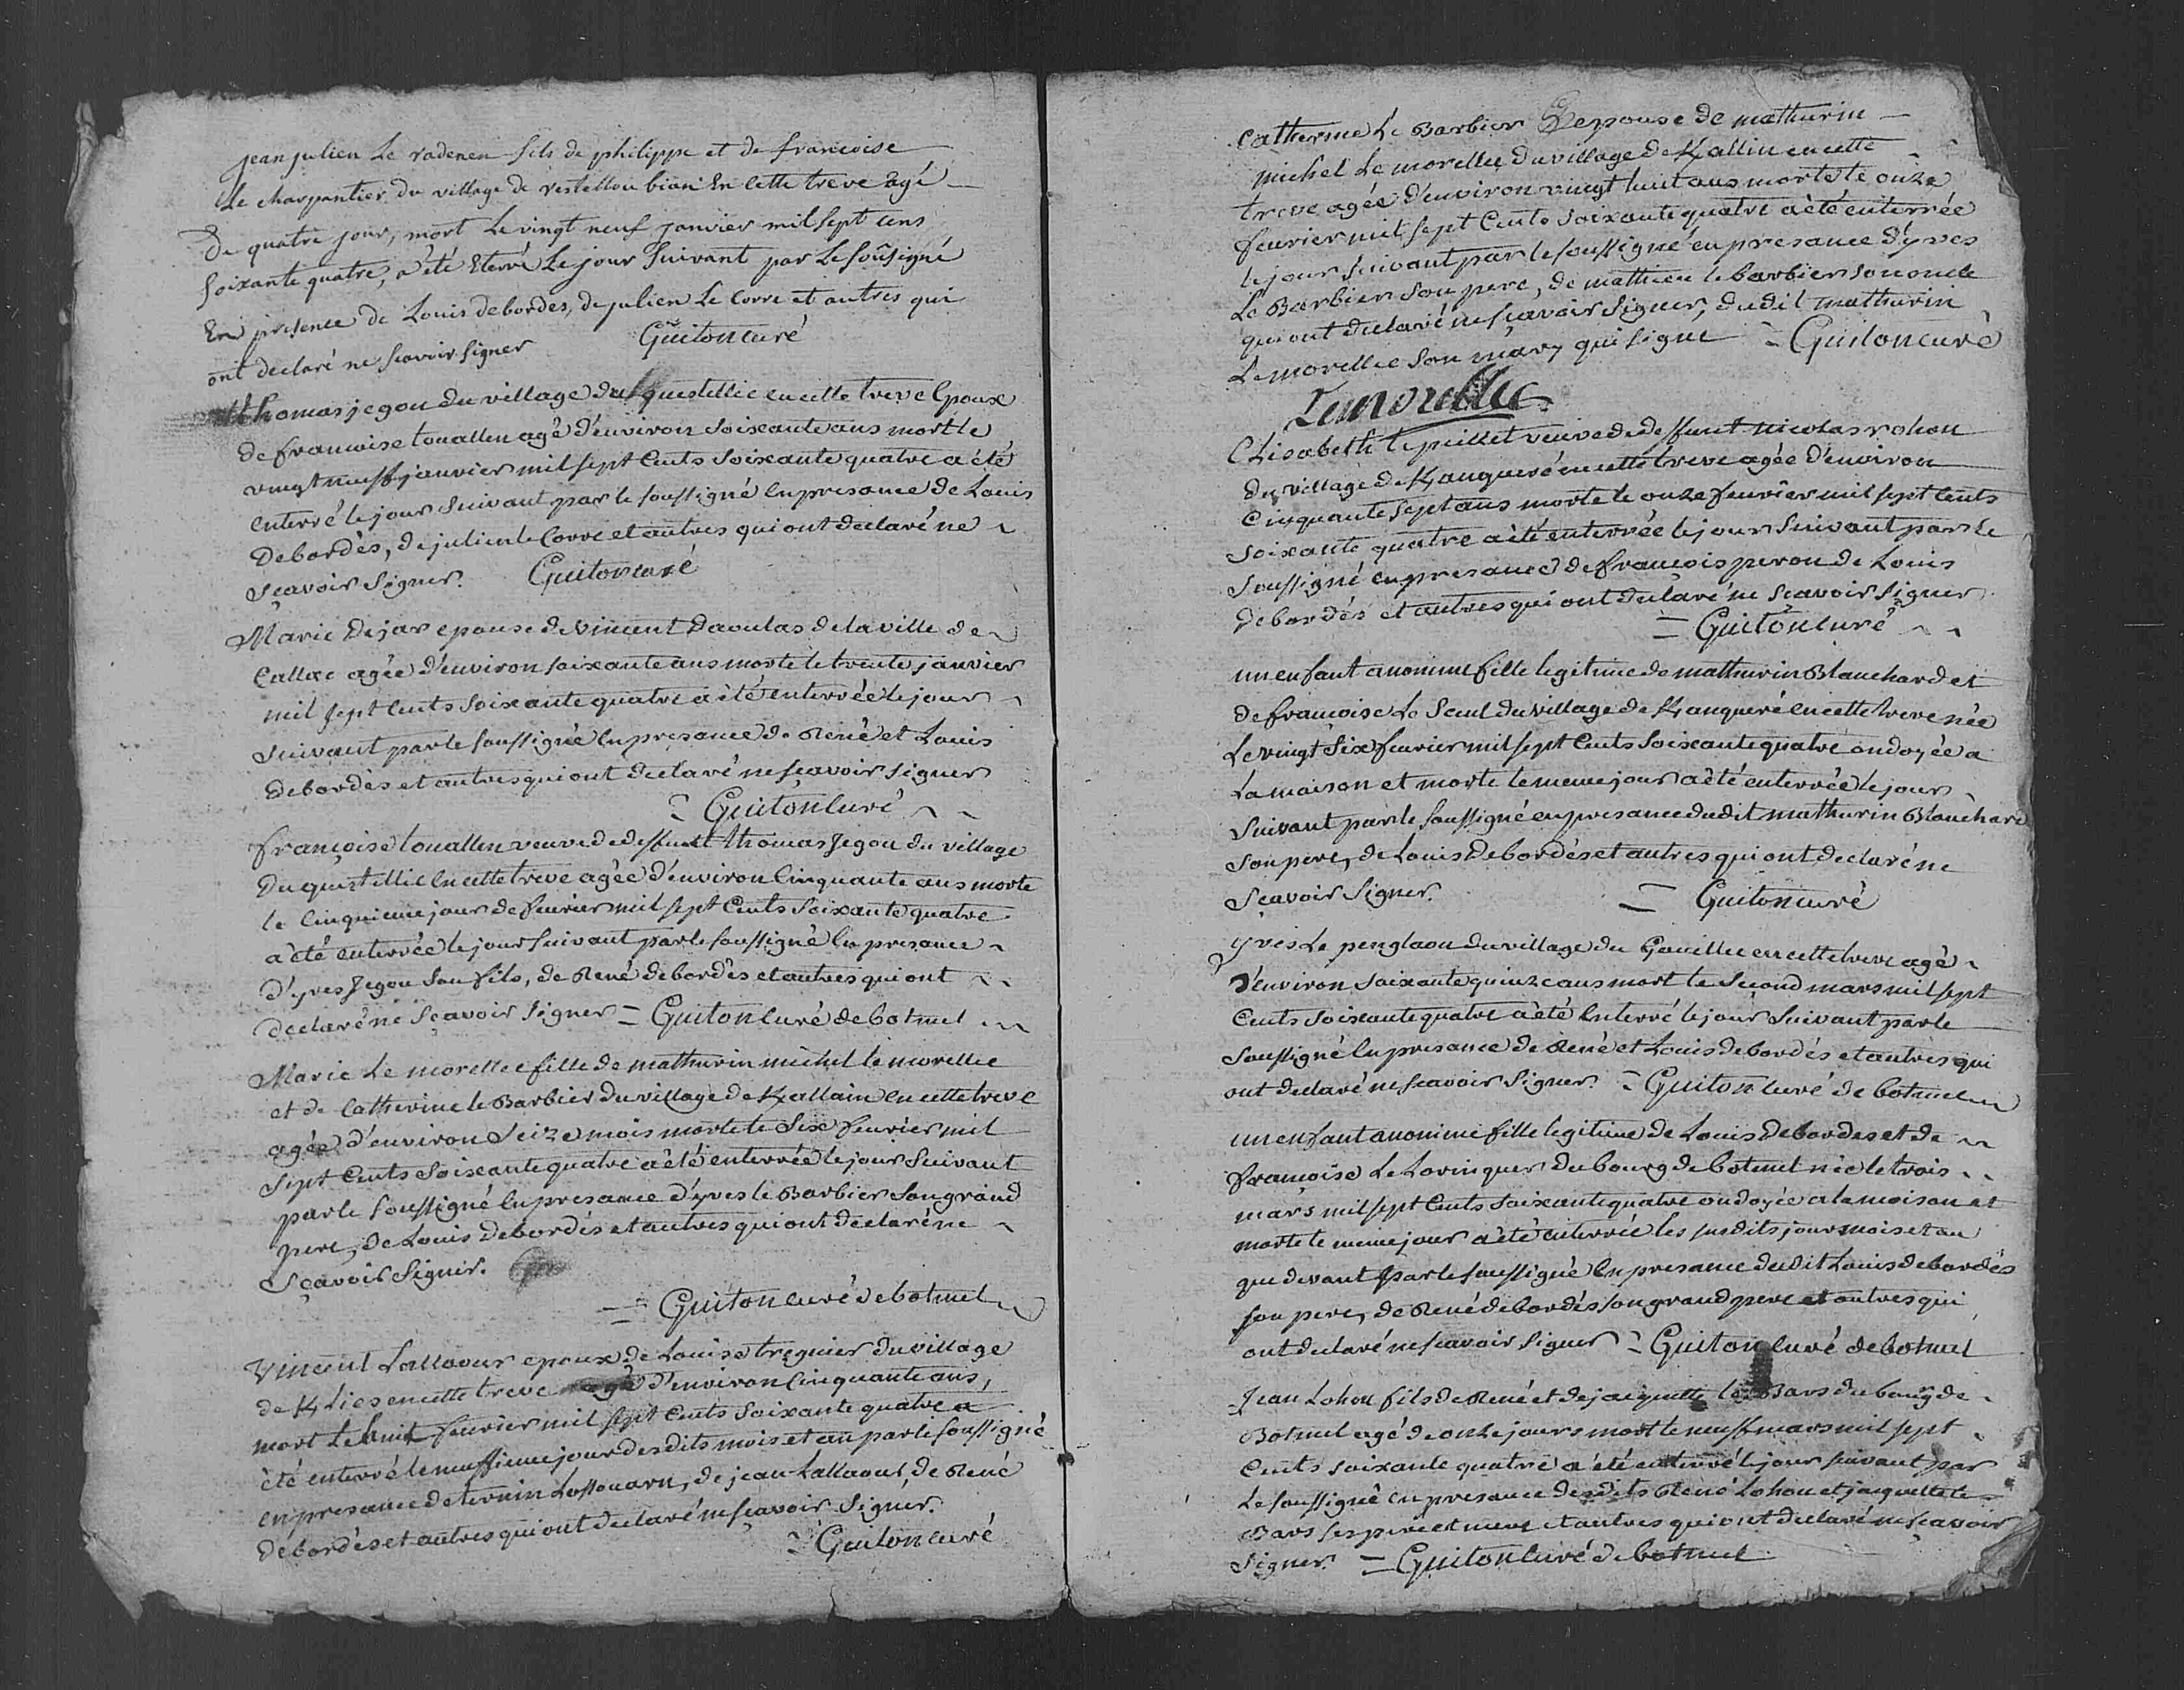 jean julien Le radenen fils de philippe et de francoise
Le charpantier du village de restellou bian En cette treve agé
de quatre jour, mort Le vingt neuf janvier mil sept cens
soixante quatre, a été Eterré Le jour suivant par Le soûsigné
En presence de Louis debordes, de julien Le Corre et autres qui
ont declaré ne scavoir signer Guiton curé
thomas jegou du village du questellic en cette treve Epoux
de francoise touallen agé d'environ soixante ans mort le
vingt neuff janvier mil sept Cents soixante quatre a été
enterré le jour suivant par le soussigné en presance de Louis
Debordès, de julien le Corre et autres qui ont declaré ne
sçavoir signer. Guiton curé
Marie Dejar epouse de Vincent Daoulas de la ville de
Callac agée d'environ soixante ans morte le trente janvier
mil sept Cents soixante quatre a été enterrée le jour
suivant par le soussigné en presance de René et Louis
Debordès et autres qui ont declaré ne sçavoir signer
= Guiton Curé
françoise touallen veuve de deffunt thomas Jegou du village
Du questellic en cette treve agée d'environ Cinquante ans morte
le Cinquieme jour de fevrier mil sept Cents soixante quatre
a été enterrée le jour suivant par le soussigné En presance
d'yves Jegou son fils, de René debordès et autres qui ont
declaré ne sçavoir signer = Guiton Curé de botmel
Marie Le morellec fille de mathurin michel le morellec
et de Catherine le Barbier du village de Kallain en cette treve
agée d'environ seize mois morte le six fevrier mil
sept Cents soixante quatre a été enterrée le jour suivant
par le soussigné En presance d'yves le Barbier son grand
pere, de Louis Debordés et autres qui ont declaré ne
sçavoir signer.
= Guiton curé de botmel
Vincent Lallaour epoux de Louise treguier du village
de en cette treve agé d'environ Cinquante ans,
mort Le huit fevrier mil sept Cents soixante quatre a
été enterré le neuffieme jour desdits mois et an par le soussigné
en presance de , de jean Lallaour, de René
debordès et autres qui ont declaré ne sçavoir signer.
= Guiton curé
Catherine Le Barbier epouse de mathurin
michel Le morellec du village de Kallin en cette
treve agée d'environ vingt huit ans morte le onze
fevrier mil sept Cents soixante quatre a été enterrée
le jour suivant par le soussigné en presance d'yves
Le Barbier son pere, de mathieu le barbier son oncle
qui ont declaré ne sçavoir signer, dudit mathurin
Le morellec son mary qui signe = Guiton curé
Lemorellec
Elisabeth le veuve de deffunt nicolas rohou
du village de Kanqueré en cette treve agée d'environ
Cinquante sept ans morte le onze fevrier mil sept Cents
soixante quatre a été enterrée le jour suivant par le
soussigné en presance de françois perou de Louis
debordés et autres qui ont declaré ne sçavoir signer
= Guiton Curé
un enfant anonime fille legitime de mathurin Blanchard et
de francoise Le Scul du village de Kanqueré en cette treve née
Le vingt six fevrier mil sept Cents soixante quatre ondoyée a
La maison et morte le meme jour a été enterrée le jour
suivant par le soussigné en presance dudit mathurin Blanchard
son pere, de Louis Debordès et autres qui ont declaré ne
sçavoir signer. = Guiton curé
yves Le penglaou du village du Gouillec en cette treve agé
d'environ soixante quinze ans mort le second mars mil sept
Cents soixante quatre a été enterré le jour suivant par le
soussigné En presance de René et Louis debordés et autres qui
ont declaré ne sçavoir signer. = Guiton Curé de botmel
un enfant anonime fille legitime de Louis Debordes et de
françoise Le Lorinquer du bourg de botmel née le trois
mars mil sept Cents soixante quatre ondoyée a la maison et
morte le meme jour a été enterrée les susdits jour mois et an
que devant par le soussigné En presance dudit Louis debordès
son pere, de René debordés son grand pere et autres qui
ont declaré ne sçavoir signer = Guiton curé de botmel
Jean Lohou fils de René et de jacquette le Bars du bourg de
Botmel agé de onze jours mort le neuff mars mil sept
Cents soixante quatre a été enterré le jour suivant par
Le soussigné en presance desdits René Lohou et jacquette le
Bars ses pere et mere et autres qui ont declaré ne sçavoir
signer. = Guiton Curé de botmel